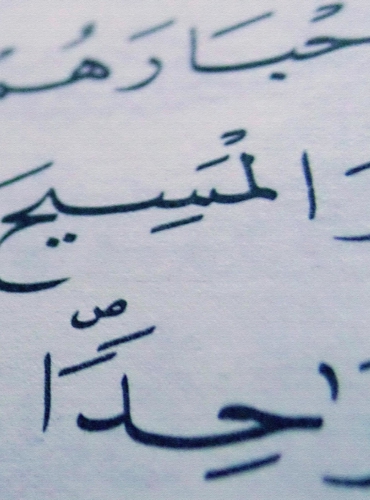 حْبَارَهُمْ
وَالْمَسِيحَ
وَاحِدًاۖ